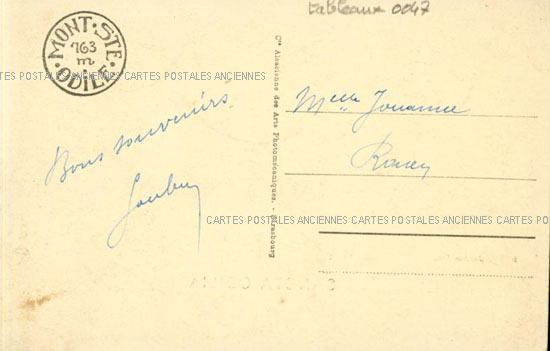 tableaux 0047
MONT·STE
763
m
·ODILE·
CARTES POSTALES ANCIENNES CARTES POSTALES ANCIENNES
Bons souvenirs.
Cie Alsacienne des Arts Photomécaniques. - Strasbourg
Melle Jouanne
CARTES POSTALES ANCIENNES CARTES POSTALES ANCIENNES CARTES POSTALES ANCIENNES